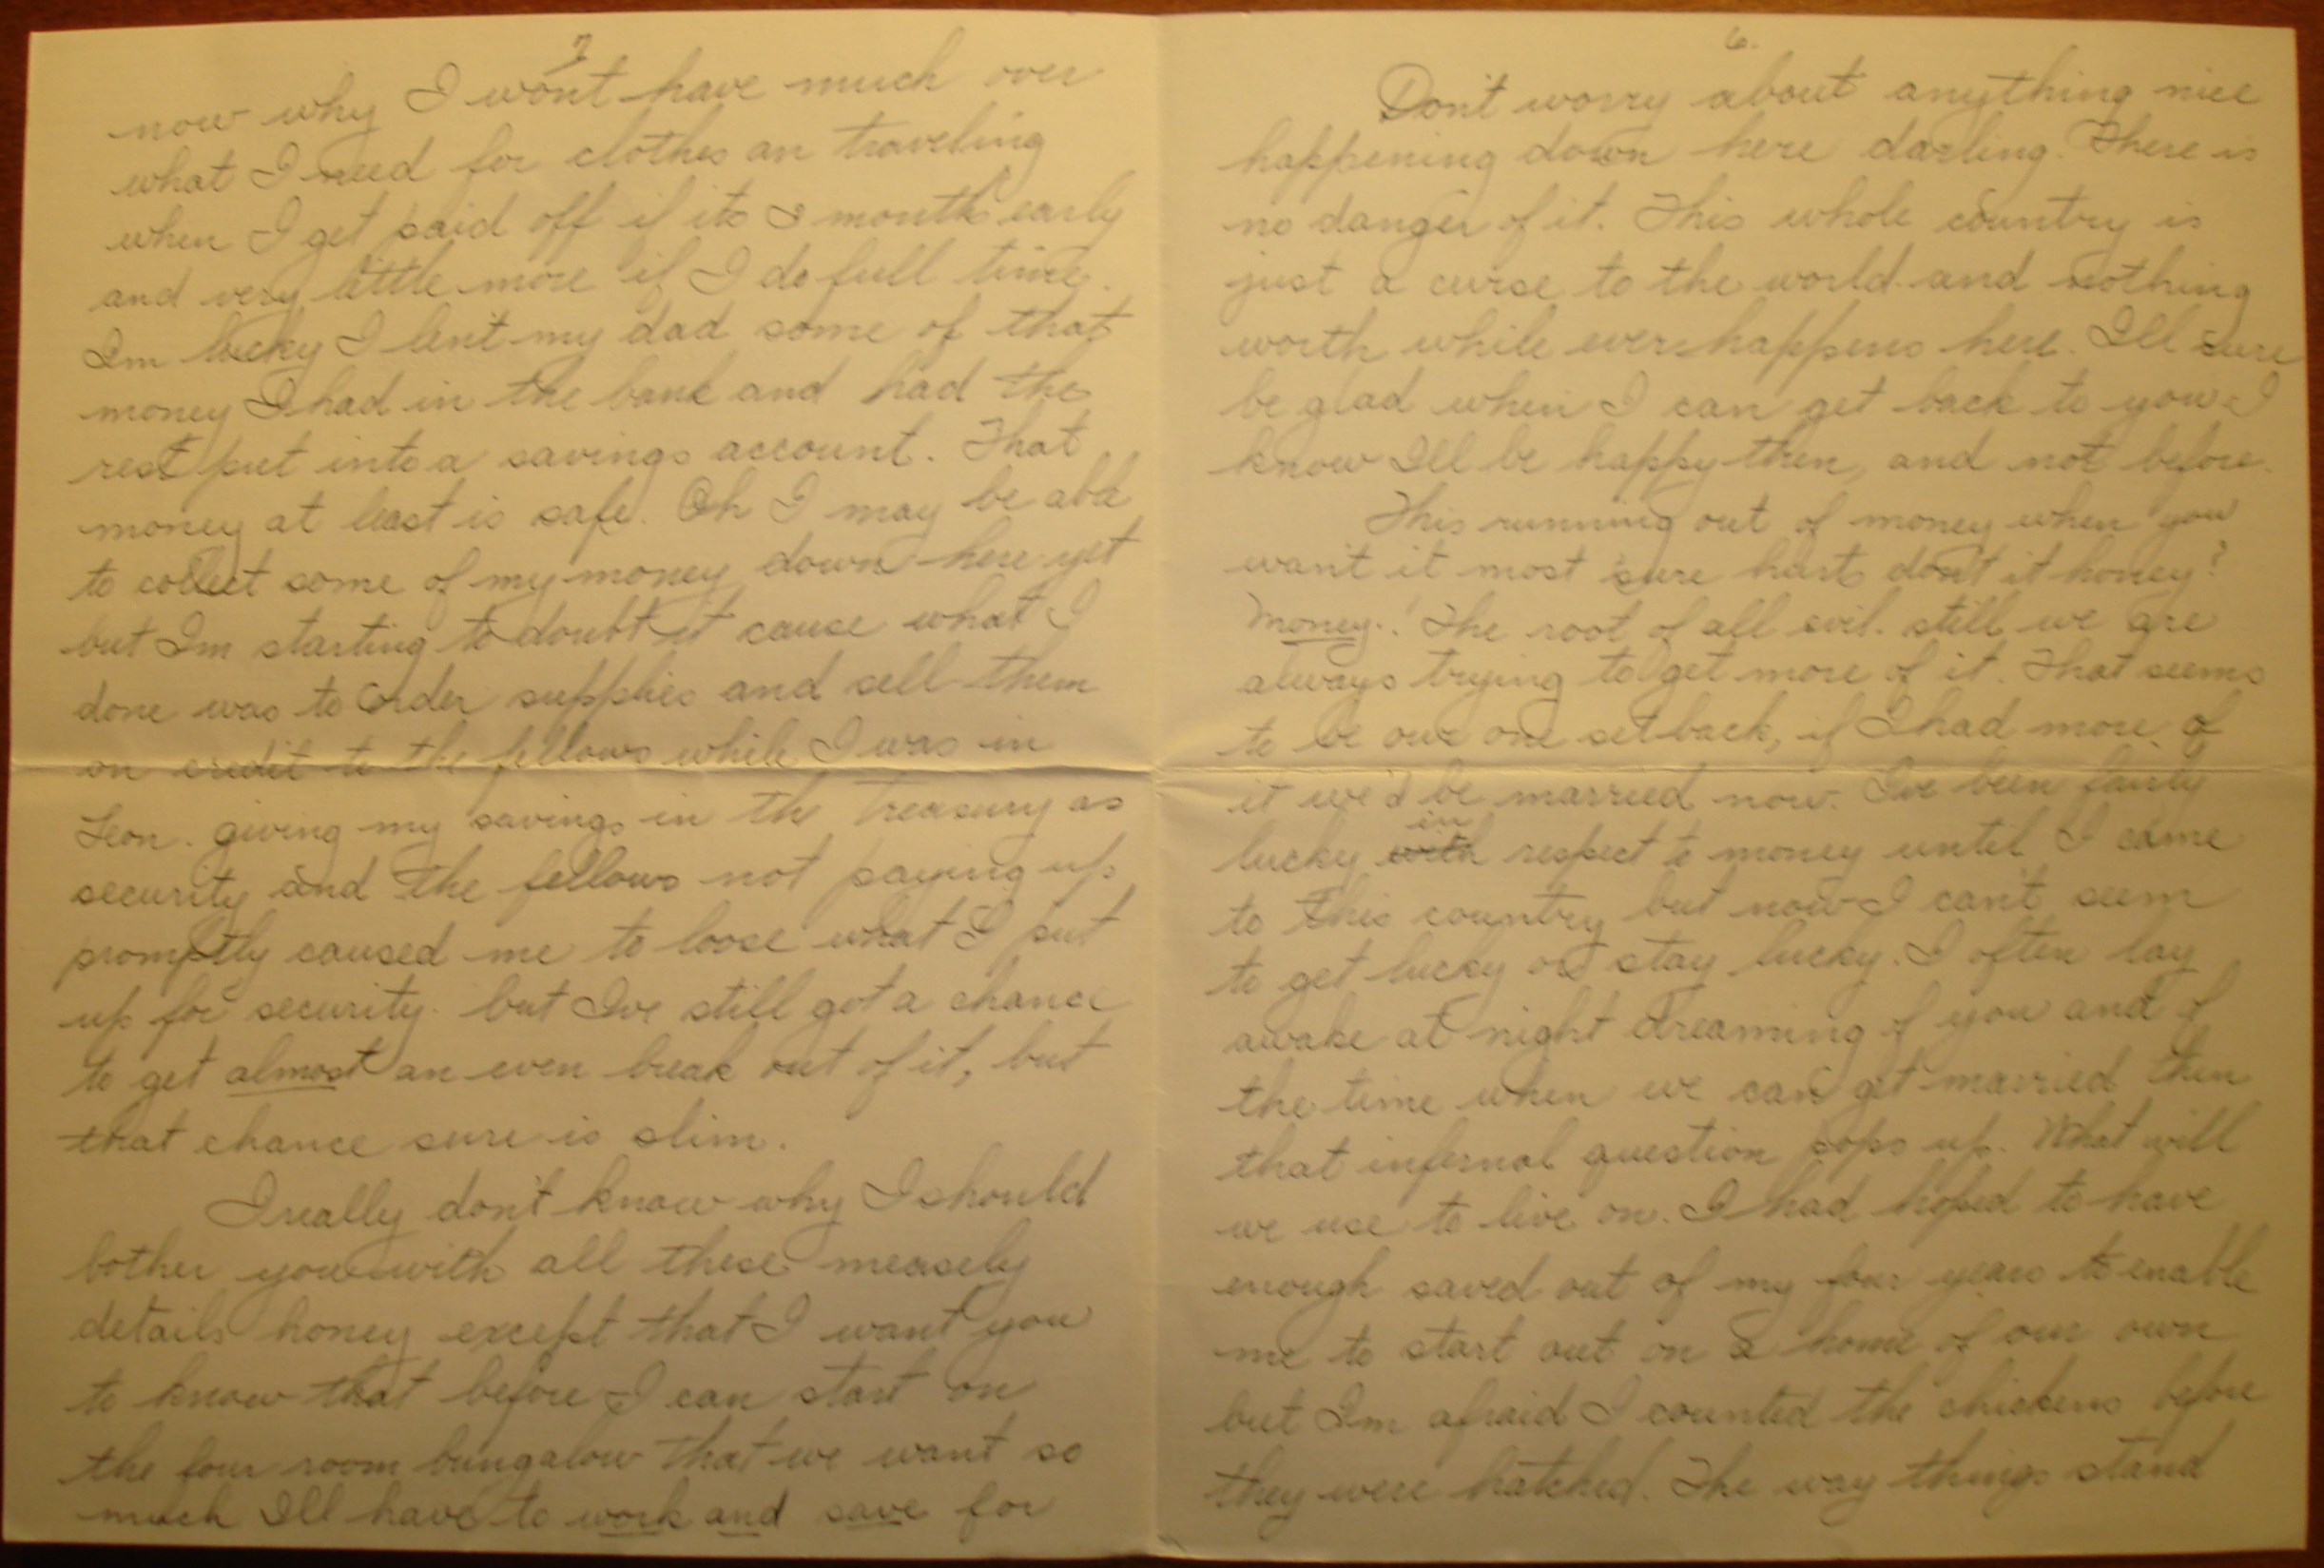 6.
Don't worry about anything nice
happening down here darling. There is
no danger of it. This whole country is
just a curse to the world and nothing
worth while ever happens here. I'll sure
be glad when I can get back to you I
know I'll be happy then, and not before.
This running out of money when you
want it most sure hurts don't it honey?
Money! The root of all evil. still we are
always trying to get more of it. That seems
to be our one setback, if I had more of
it we'd be married now. I've been fairly
lucky with in respect to money until I came
to this country but now I can't seem
to get lucky or stay lucky. I often lay
awake at night dreaming of you and of
the time when we can get married then
that infernal question pops up. What will
we use to live on. I had hoped to have
enough saved out of my four years to enable
me to start out on a home of our own
but I'm afraid I counted the chickens before
they were hatched. The way things stand
7
now why I won't have much over
what I need for clothes an traveling
when I get paid off if its month early
and very little more if I do full time.
Im lucky I lent my dad some of that
money I had in the bank and had the
rest put into a savings account. That
money at least is safe. Oh I may be able
to collect some of my money down here yet
but Im starting to doubt it cause what I
done was to order supplies and sell them
on credit to the fellows while I was in
Leon. giving my savings in the treasury as
security and the fellows not paying up
promptly caused me to loose what I put
up for security. but Ive still got a chance
to get almost an even break out of it, but
that chance sure is slim.
I really don't know why I should
bother you with all these measely
details honey except that I want you
to know that before I can start on
the four room bungalow that we want so
much I'll have to work and save for